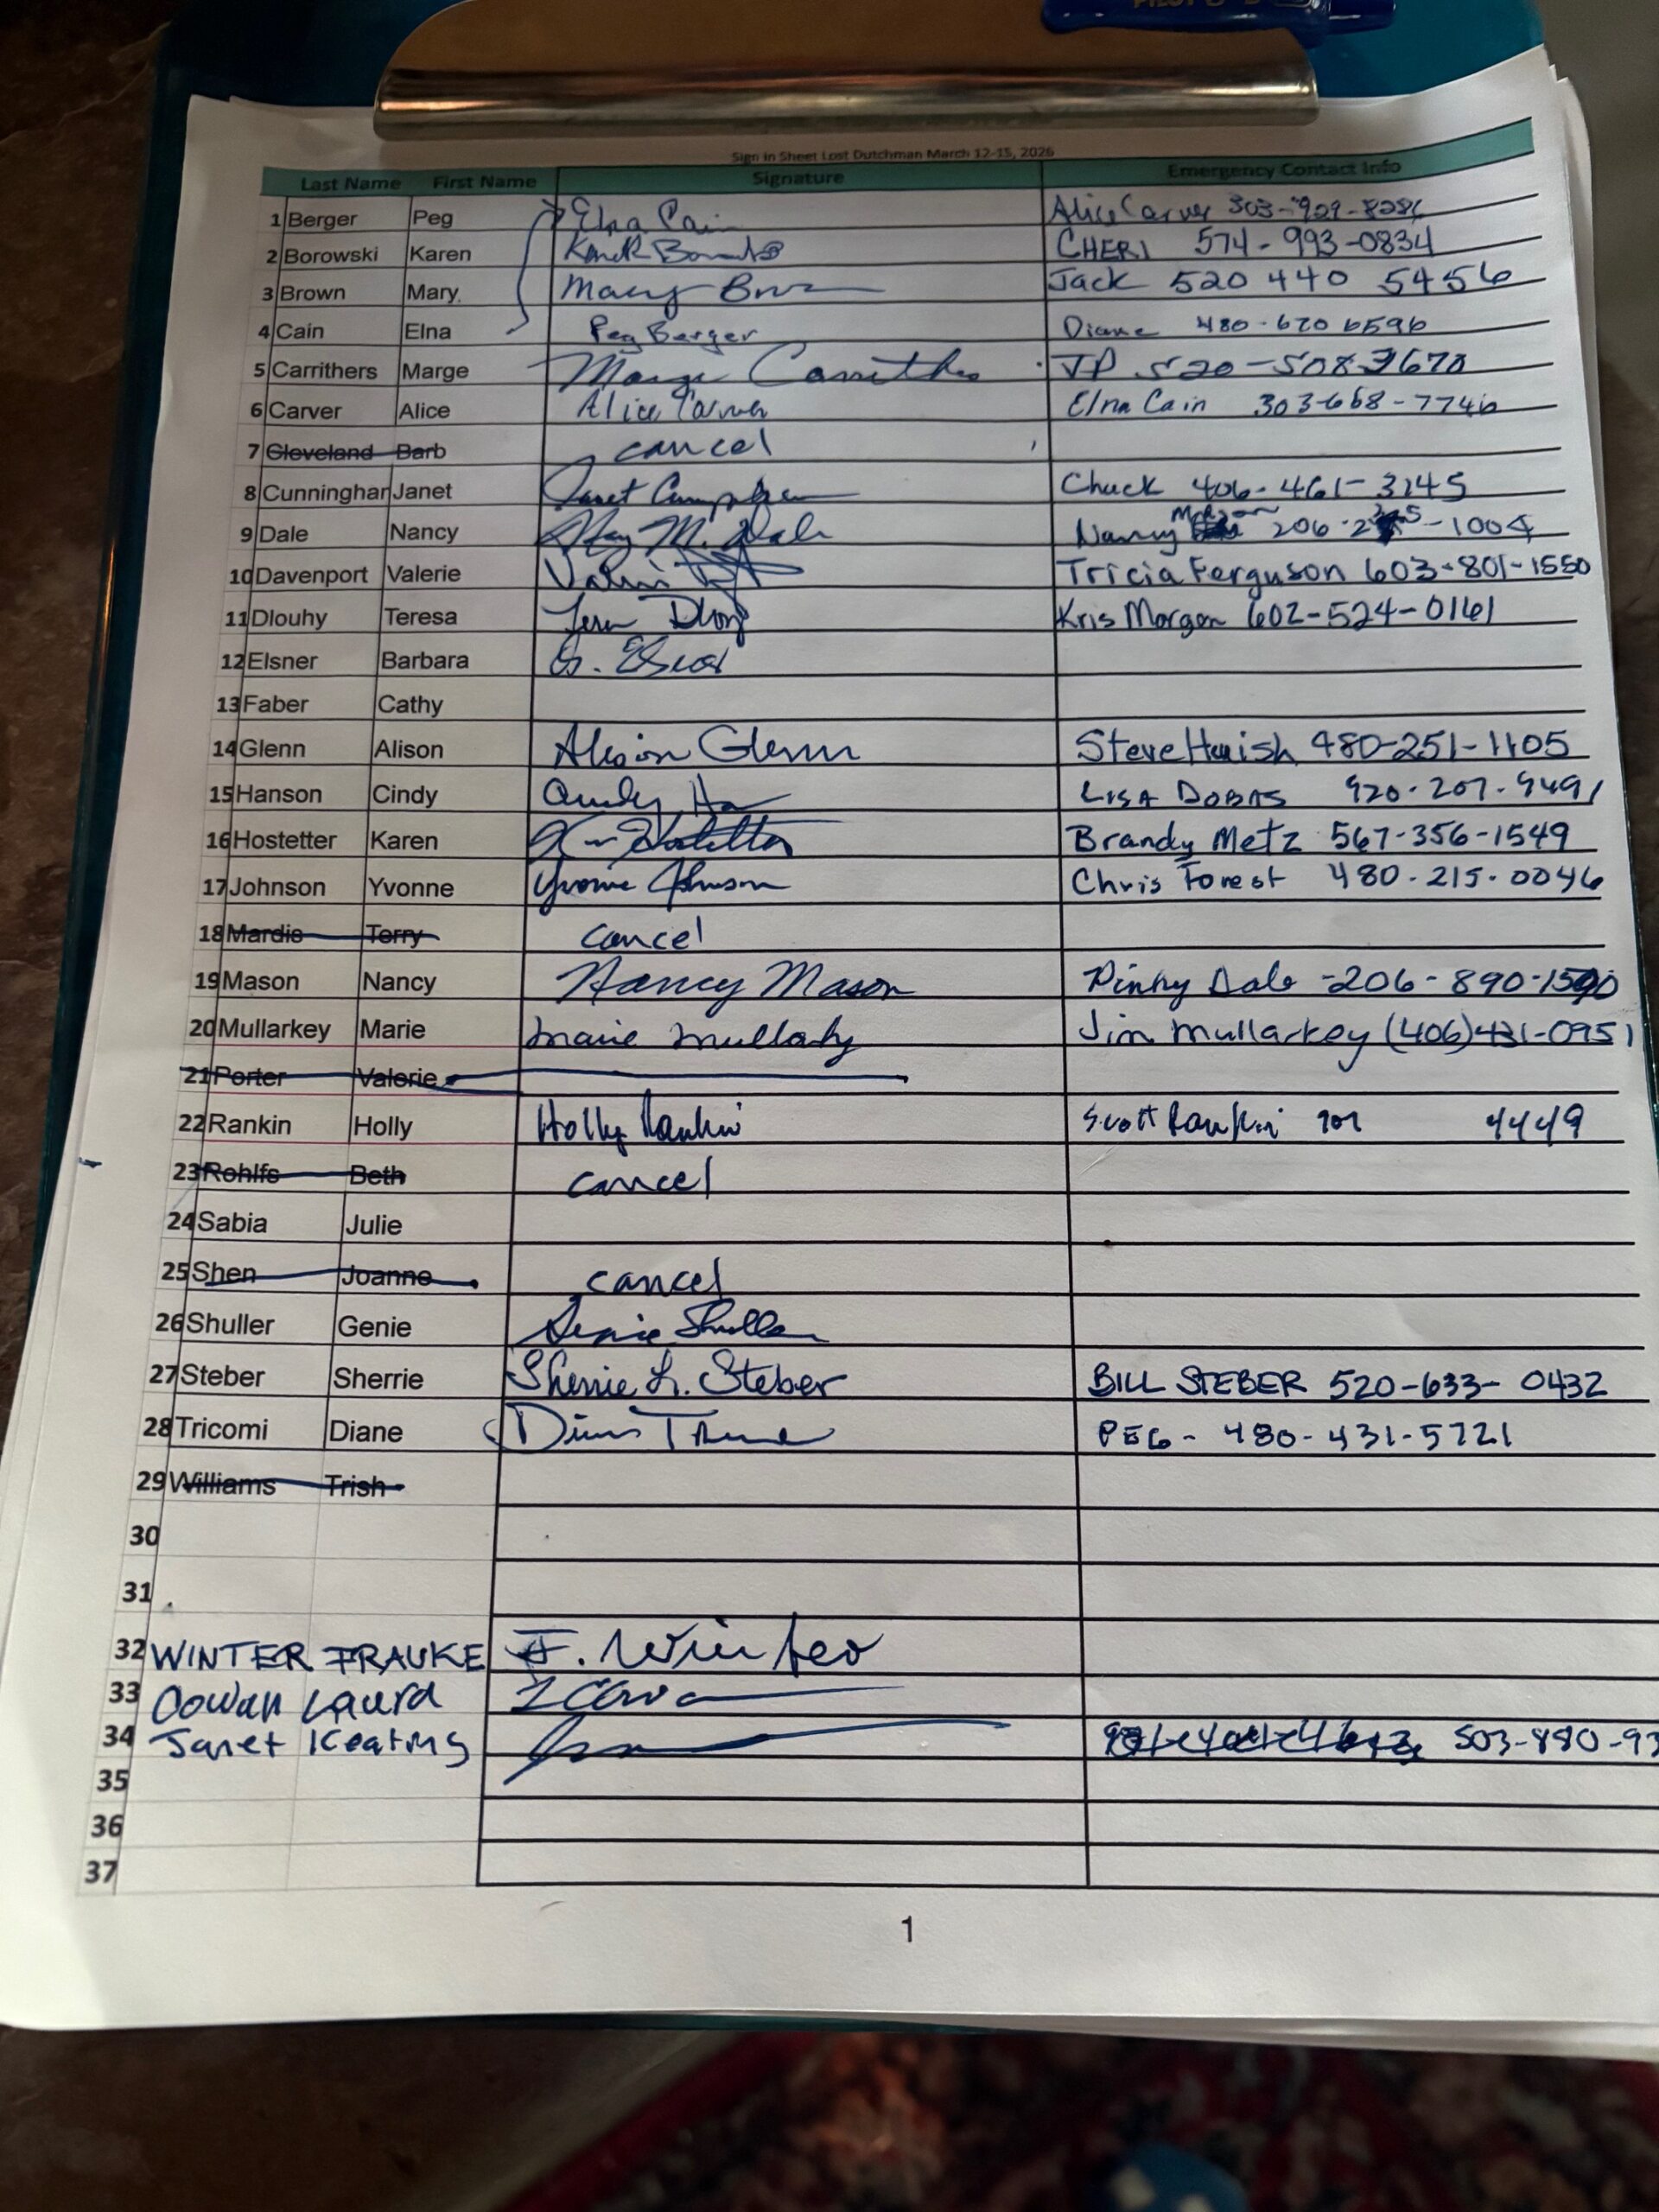 PILOT
Sign in Sheet Lost Dutchman March 12-15, 2026
Last Name First Name Signature Emergency Contact Info
1 Berger Peg Elna Cain Alice Carver 303-929-828
2 Borowski Karen CHERI 574-993-0834
3 Brown Mary Mary Jack 520 440 5456
4 Cain Elna Peg Berger Diane 480-620 6596
5 Carrithers Marge Marge Carrithers JP 520-508-
6 Carver Alice Alice Carver Elna Cain 303-668-7746
7 Cleveland Barb cancel
8 Cunninghar Janet Janet Chuck 406-461-3245
9 Dale Nancy M. Dale Nancy Mason 206-2 -1004
10 Davenport Valerie Tricia Ferguson 603-801-1550
11 Dlouhy Teresa Kris Morgan 602-524-0161
12 Elsner Barbara
13 Faber Cathy
14 Glenn Alison Alison Glenn Steve Huish 480-251-1105
15 Hanson Cindy Cindy LISA 920-207-9491
16 Hostetter Karen Hostetter Brandy Metz 567-356-1549
17 Johnson Yvonne Yvonne Johnson Chris Forest 480-215-0046
18 Mardis Terry cancel
19 Mason Nancy Nancy Mason Pinky Dale -206-890-1590
20 Mullarkey Marie Marie Mullarky Jim Mullarkey (406)431-0951
21 Porter Valerie
22 Rankin Holly Holly Rankin Scott Rankin 4449
23 Rohlfs Beth cancel
24 Sabia Julie
25 Shen Joanne cancel
26 Shuller Genie Genie Shuller
27 Steber Sherrie Sherrie L. Steber BILL STEBER 520-633-0432
28 Tricomi Diane PEG - 480-431-5721
29 Williams Trish
30
31
32 WINTER FRAUKE F. Winter
33 Cowan Laura
34 Janet Keating 503-880-93
35
36
37
1